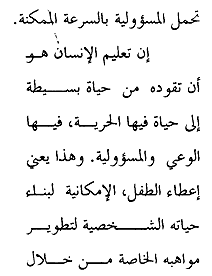 تحمل المسؤولية بالسرعة الممكنة.
إن تعليم الإنسان هـو
أن تقوده من حياة بسيطة
إلى حياة فيها الحرية، فيها
الوعي والمسؤولية. وهذا يعني
إعطاء الطفل، الإمكانية لبناء
حياته الشخصية لتطوير
مواهبه الخاصة من خلال